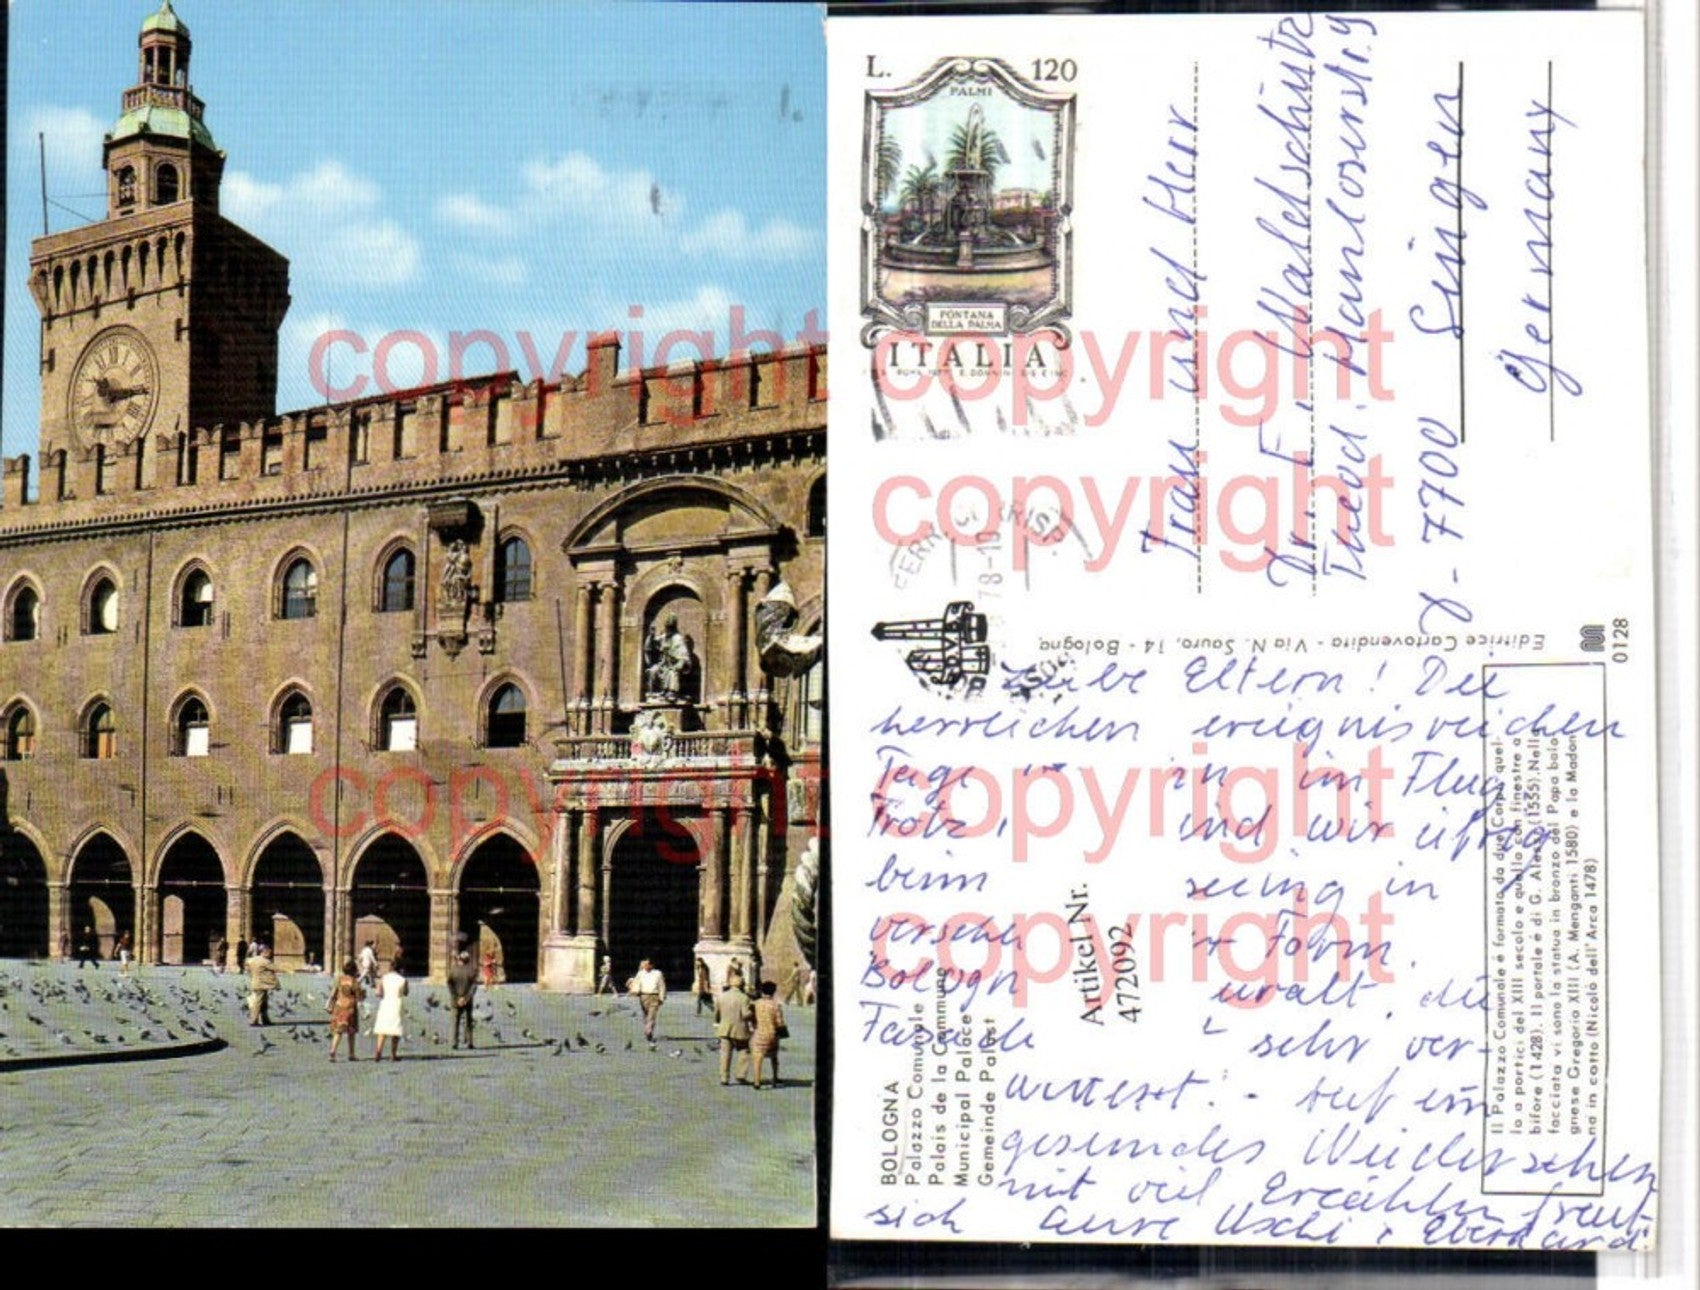 L. 120
PALMI
FONTANA
DELLA PALMA
ITALIA
Frau und Herr
Dr. F. Waldschütz
Theod. Hanloserstr. 9
D-7700 Singen
Germany
Editrice Cartovendita - Via N. Sauro, 14 - Bologna
0128
Liebe Eltern! Die
herrlichen ereignisreichen
Tage in im Flug
Trotz, und wir eifrig
beim seeing in
Form.
Bologn uralt. die
Fassade sehr ver-
wittert. - Auf ein
gesundes Wiedersehen
mit viel Erzählen freut
sich Eure Uschi + Eberhard.
BOLOGNA
Palazzo Comunale
Palais de la Commune
Municipal Palace
Gemeinde Palast
Il Palazzo Comunale è formato da due Corpi quel-
lo a portici del XIII secolo e quello con finestre a
bifore (1428). Il portale è di G. Alessi (1555). Nella
facciata vi sono la statua in bronzo del Papa bolo-
gnese Gregorio XIII (A. Menganti 1580) e la Madon-
na in cotto (Nicolò dell'Arca 1478)
Artikel Nr.
472092
copyright
copyright
copyright
copyright
copyright
copyright